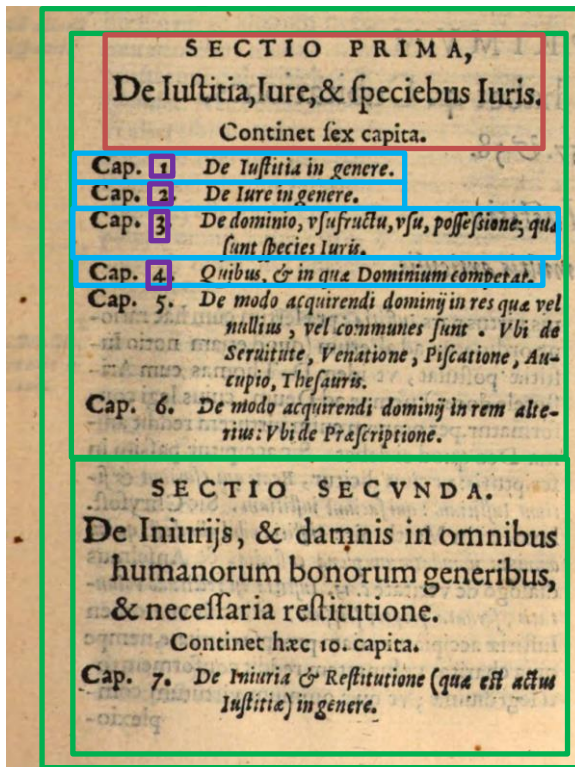 SECTIO PRIMA,
De Iuſtitia, Iure, & ſpeciebus Iuris.
Continet ſex capita.
Cap. 1 De Iuſtitia in genere.
Cap. 2. De Iure in genere.
Cap. 3 De dominio, vſufructu, vſu, poſſeſsione, quæ
ſunt ſpecies Iuris.
Cap. 4. Quibus, & in quæ Dominium competat.
Cap. 5. De modo acquirendi dominij in res quæ vel
nullius, vel communes ſunt. Vbi de
Seruitute, Venatione, Piſcatione, Au-
cupio, Theſauris.
Cap. 6. De modo acquirendi dominij in rem alte-
rius: Vbi de Præſcriptione.
SECTIO SECVNDA.
De Iniurijs, & damnis in omnibus
humanorum bonorum generibus,
& neceſſaria reſtitutione.
Continet hæc 10. capita.
Cap. 7. De Iniuria & Reſtitutione (quæ eſt actus
Iuſtitiæ) in genere.